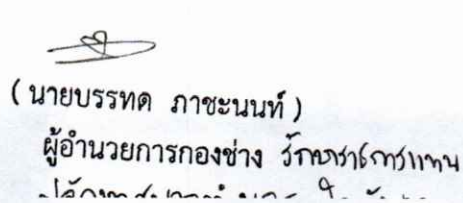 (นายบรรทด ภาชะนนท์)
ผู้อำนวยการกองช่าง รักษาราชการแทน